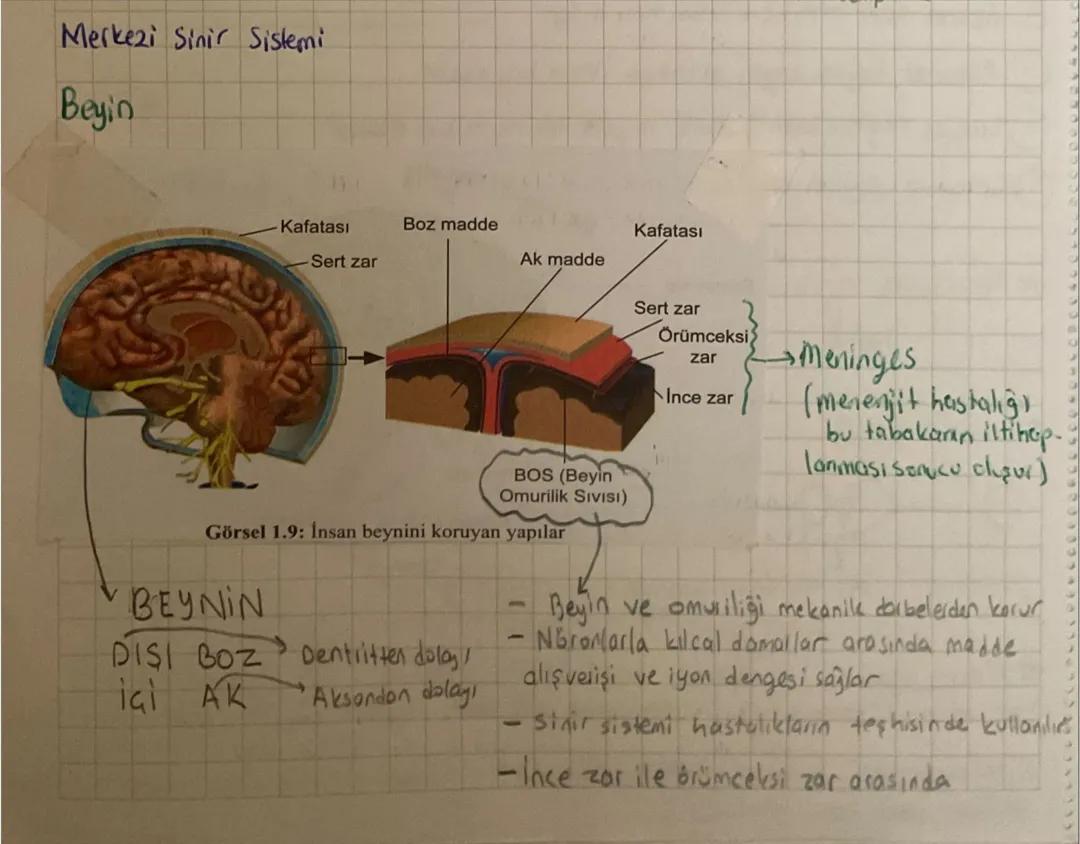 Merkezi Sinir Sistemi
Beyin
Kafatası
Sert zar
Boz madde
Ak madde
Kafatası
Sert zar
Örümceksi
zar
İnce zar
BOS (Beyin
Omurilik Sıvısı)
Görsel 1.9: İnsan beynini koruyan yapılar
→ Meninges
(menenjit hastalığı
bu tabakanın iltihap-
lanması sonucu oluşur)
BEYNİN
DIŞI BOZ → Dentritten dolayı
İÇİ AK → Aksondan dolayı
- Beyin ve omuriliği mekanik darbelerden korur
- Nöronlarla kılcal damarlar arasında madde
alışverişi ve iyon dengesi sağlar
- Sinir sistemi hastalıkların teşhisinde kullanılır
- İnce zar ile örümceksi zar arasında